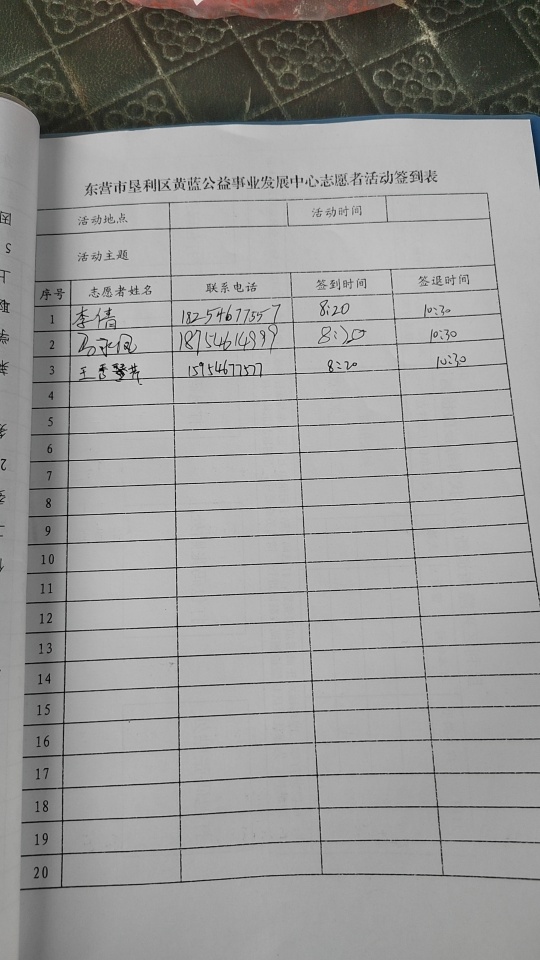 东营市垦利区黄蓝公益事业发展中心志愿者活动签到表
活动地点 活动时间
活动主题
序号 志愿者姓名 联系电话 签到时间 签退时间
1 李倩 18254677557 8:20 10:30
2 18954614999 8:20 10:30
3 王秀 15954677577 8:20 10:30
4
5
6
7
8
9
10
11
12
13
14
15
16
17
18
19
20